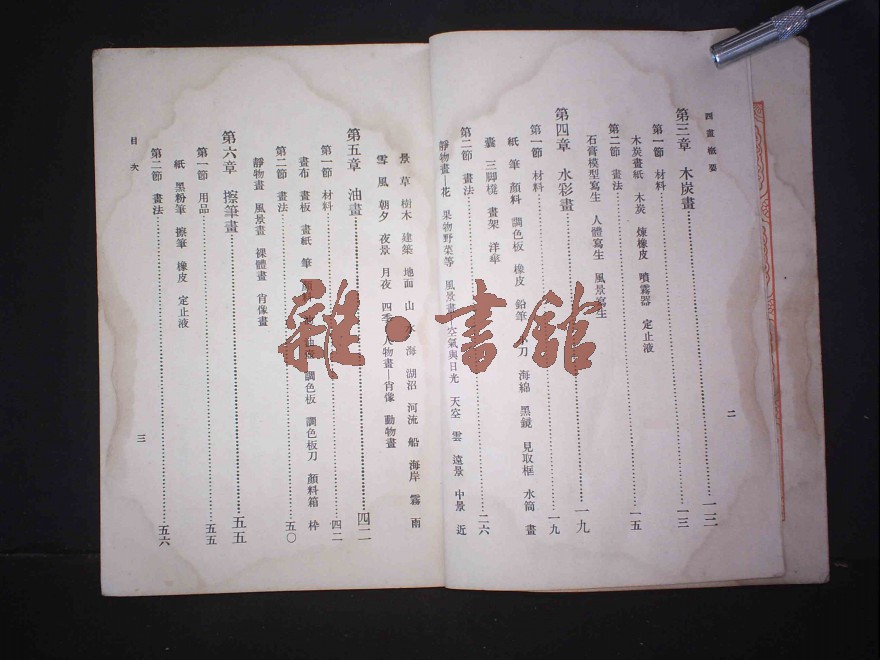 西畫概要
二
第三章 木炭畫……一三
第一節 材料……一三
木炭畫紙 木炭 煉橡皮 噴霧器 定止液
第二節 畫法……一五
石膏模型寫生 人體寫生 風景寫生
第四章 水彩畫……一九
第一節 材料……一九
紙 筆 顏料 調色板 橡皮 鉛筆 小刀 海綿 黑鏡 見取框 水筒 畫
囊 三脚櫈 畫架 洋傘
第二節 畫法……二六
靜物畫—花 果物野菜等 風景畫—空氣與日光 天空 雲 遠景 中景 近
景 草 樹木 建築 地面 山 水 海 湖沼 河流 船 海岸 霧 雨
雪 風 朝夕 夜景 月夜 四季 人物畫—肖像 動物畫
第五章 油畫……四二
第一節 材料……四二
畫布 畫板 畫紙 筆 顏料 油 油壺 調色板 調色板刀 顏料箱 枠
第二節 畫法……五〇
靜物畫 風景畫 裸體畫 肖像畫
第六章 擦筆畫……五五
第一節 用品……五五
紙 黑粉筆 擦筆 橡皮 定止液
第二節 畫法……五六
目次
三
雜·書館